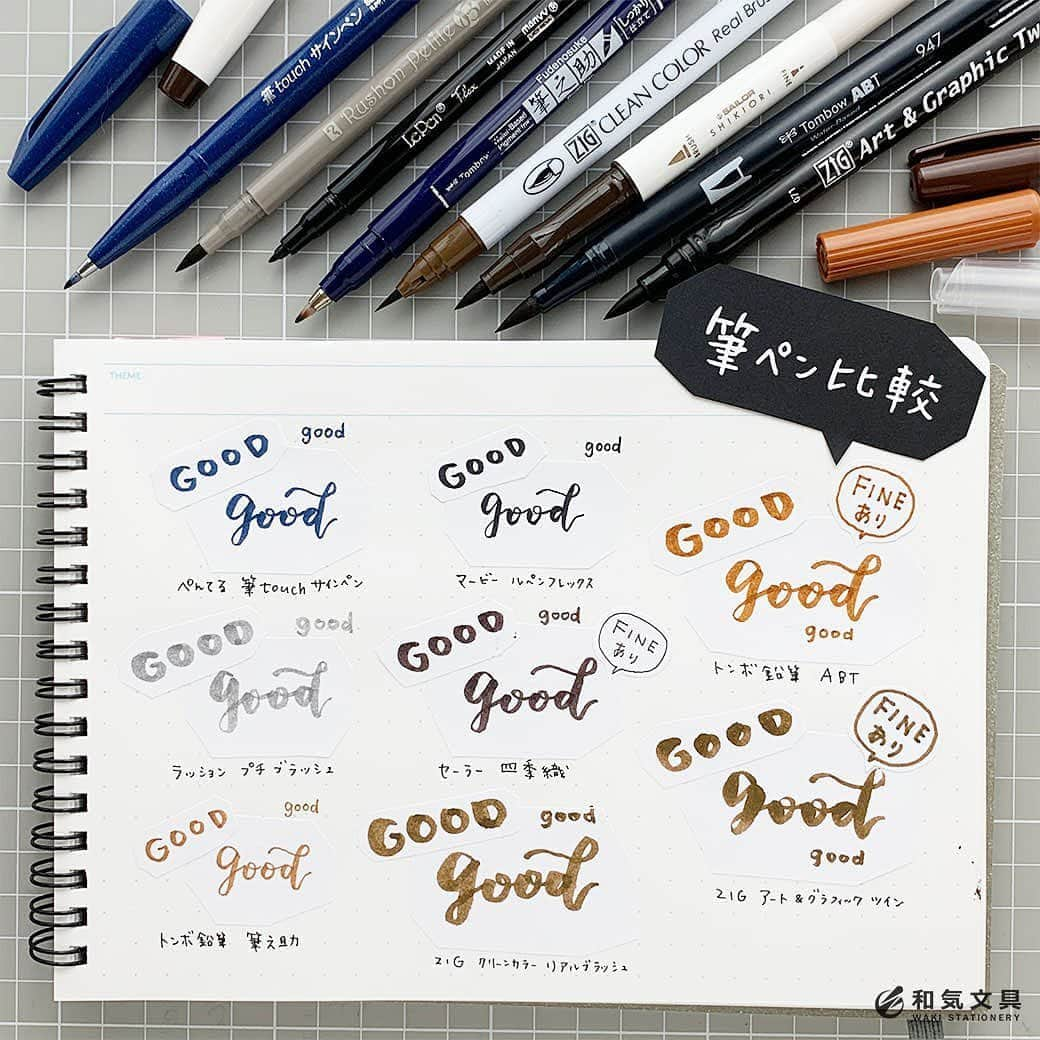 筆touch サインペン
Rushon Petite 03
MADE IN JAPAN
marvy
LePen Flex
Fudenosuke
筆之助
しっかり仕立て
Water-Based Pigment Ink
Tombow
ZIG CLEAN COLOR Real Brush
SAILOR
SHIKIORI
BRUSH
FINE
Tombow ABT
947
ZIG Art & Graphic Tw
筆ペン比較
THEME
GOOD good
good
ぺんてる 筆touchサインペン
GOOD good
good
マービー ルペンフレックス
GOOD
FINE
あり
good
good
トンボ鉛筆 ABT
GOOD good
good
ラッション プチブラッシュ
GOOD good
FINE
あり
good
セーラー 四季織
GOOD
FINE
あり
good
good
ZIG アート&グラフィックツイン
GOOD good
good
トンボ鉛筆 筆之助
GOOD good
good
ZIG クリーンカラー リアルブラッシュ
和気文具
WAKI STATIONERY